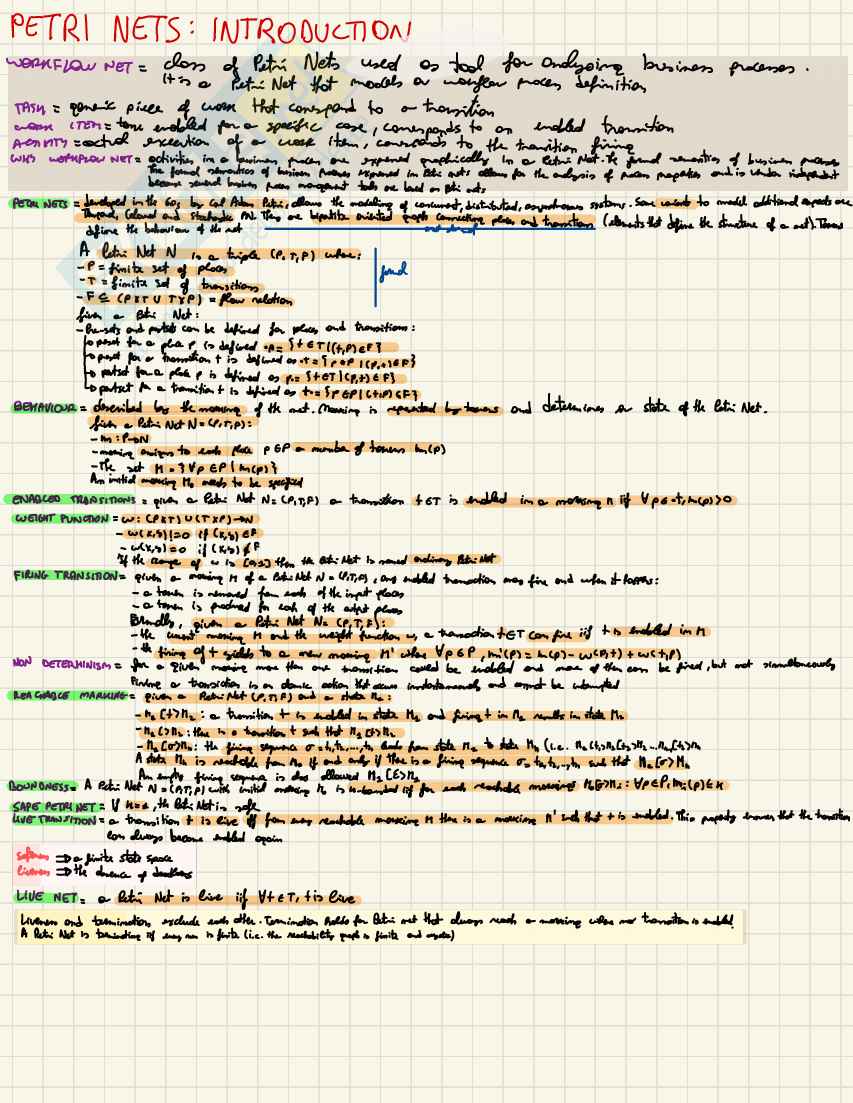 PETRI NETS: INTRODUCTION
WORKFLOW NET = class of Petri Nets used as tool for analysing business processes.
It is a Petri Net that models a workflow process definition
TASK = generic piece of work that correspond to a transition
WORK ITEM = task enabled for a specific case, corresponds to an enabled transition
ACTIVITY = actual execution of a work item, corresponds to the transition firing
WHY WORKFLOW NET = activities in a business process are expressed graphically in a Petri Net. The formal semantics of business processes
The formal semantics of business processes expressed in Petri nets allows for the analysis of process properties and is vendor independent
because several business process management tools are based on Petri nets
PETRI NETS = developed in the 60s by Carl Adam Petri, allows the modeling of concurrent, distributed, asynchronous systems. Some variants to model additional aspects are
Timed, Colored and Stochastic PN. They are bipartite oriented graph connecting places and transitions (elements that define the structure of a net). Tokens
define the behaviour of the net
A Petri Net N is a triple (P,T,F) where:
- P = finite set of places
- T = finite set of transitions
- F ⊆ (P×T ∪ T×P) = flow relation
Given a Petri Net:
- Pre-sets and postsets can be defined for places and transitions:
preset for a place p is defined •p = {t∈T|(t,p)∈F}
preset for a transition t is defined as •t = {p∈P|(p,t)∈F}
postset for a place p is defined as p• = {t∈T|(p,t)∈F}
postset for a transition t is defined as t• = {p∈P|(t,p)∈F}
BEHAVIOUR = described by the marking of the net. Marking is represented by tokens and determines a state of the Petri Net.
Given a Petri Net N=(P,T,F):
- m: P→N
- marking assigns to each place p∈P a number of tokens m(p)
- The set M = {∀p∈P | m(p)}
An initial marking M0 needs to be specified
ENABLED TRANSITIONS = given a Petri Net N=(P,T,F) a transition t∈T is enabled in a marking M iif ∀p∈•t, m(p)>0
WEIGHT FUNCTION = w: (P×T)∪(T×P)→N
- w(x,y)!=0 if (x,y)∈F
- w(x,y)=0 if (x,y)∉F
If the range of w is [0,1] then the Petri Net is named ordinary Petri Net
FIRING TRANSITION = given a marking M of a Petri Net N=(P,T,F), any enabled transition may fire and when it happens:
- a token is removed from each of the input places
- a token is produced for each of the output places
given a Petri Net N=(P,T,F):
- the current marking M and the weight function w, a transition t∈T can fire iif t is enabled in M
- the firing of t yields to a new marking M' where ∀p∈P, m'(p) = m(p) - w(p,t) + w(t,p)
NON DETERMINISM = for a given marking more than one transition could be enabled and more of them can be fired, but not simultaneously
Firing a transition is an atomic action that occurs instantaneously and cannot be interrupted
REACHABLE MARKING = given a Petri Net (P,T,F) and a state M1:
- M1[t>M2: a transition t is enabled in state M1 and firing t in M1 results in state M2
- M1[>M2: there is a transition t such that M1[t>M2
- M1[σ>Mn: the firing sequence σ=t1,t2,...,tn leads from state M1 to state Mn (i.e. M1[t1>M2[t2>M3...Mn[tn>Mn
A state Mn is reachable from M1 if and only if there is a firing sequence σ=t1,t2,...,tn such that M1[σ>Mn
An empty firing sequence is also allowed M1[ε>M1
BOUNDNESS = A Petri Net N=(P,T,F) with initial marking M0 is k-bounded iif for each reachable marking M0[σ>Mi: ∀p∈P, mi(p)≤k
SAFE PETRI NET = if k=1, the Petri Net is safe
LIVE TRANSITION = a transition t is live iff from every reachable marking M there is a marking M' such that t is enabled. This property ensures that the transition
can always become enabled again
safeness ⇒ a finite state space
liveness ⇒ the absence of deadlocks
LIVE NET = a Petri Net is live iif ∀t∈T, t is live
Liveness and termination exclude each other. Termination holds for Petri net that always reach a marking where no transition is enabled.
A Petri Net is terminating if every run is finite (i.e. the reachability graph is finite and acyclic)